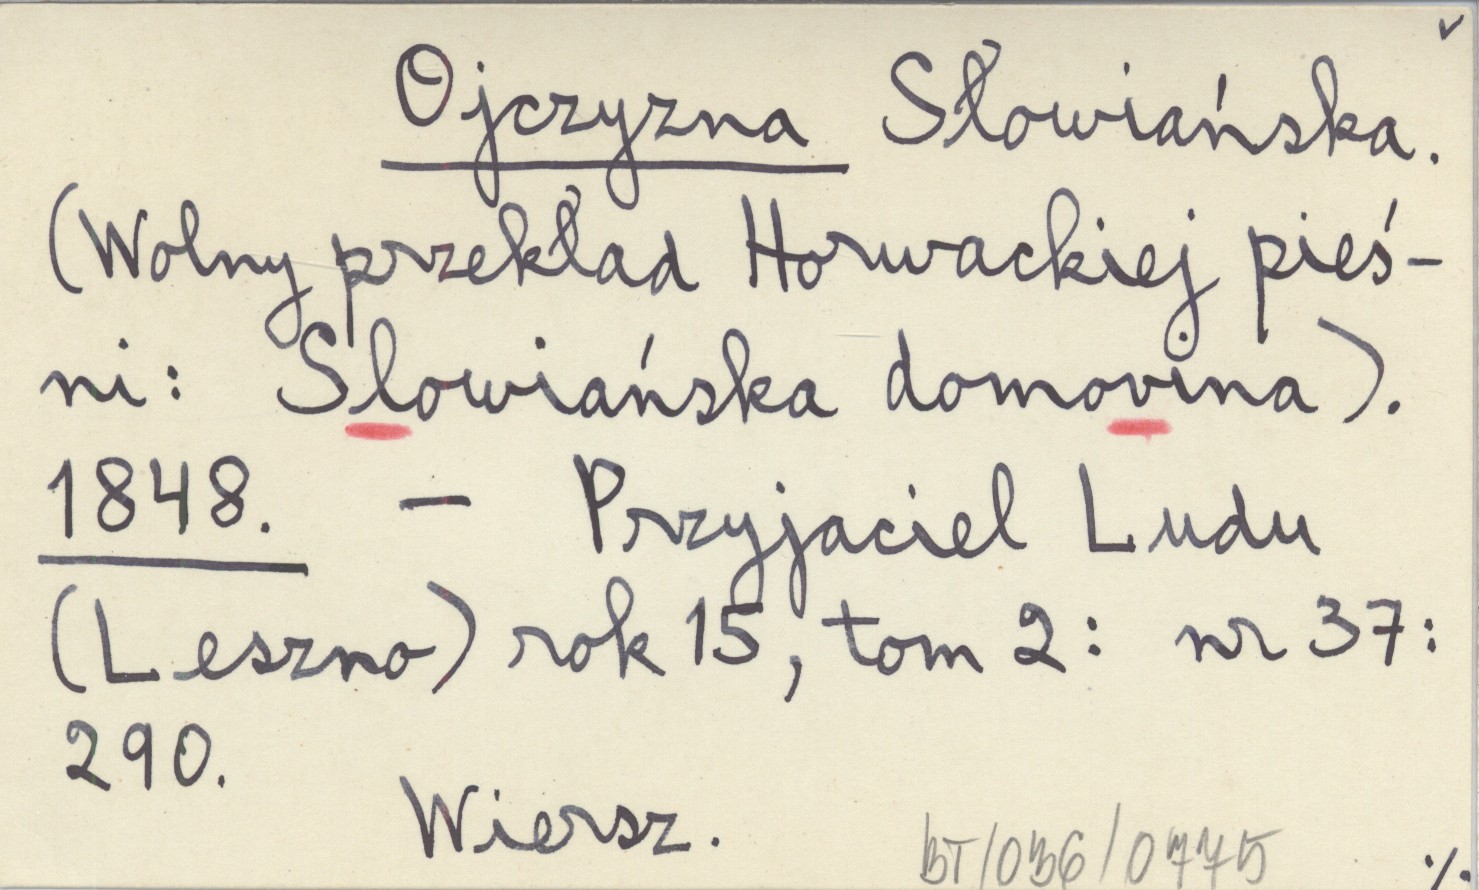 Ojczyzna Słowiańska.
(Wolny przekład Horwackiej pieś-
ni: Slowiańska domovina).
1848. – Przyjaciel Ludu
(Leszno) rok 15, tom 2: nr 37:
290.
Wiersz.
BT/036/0775
./.